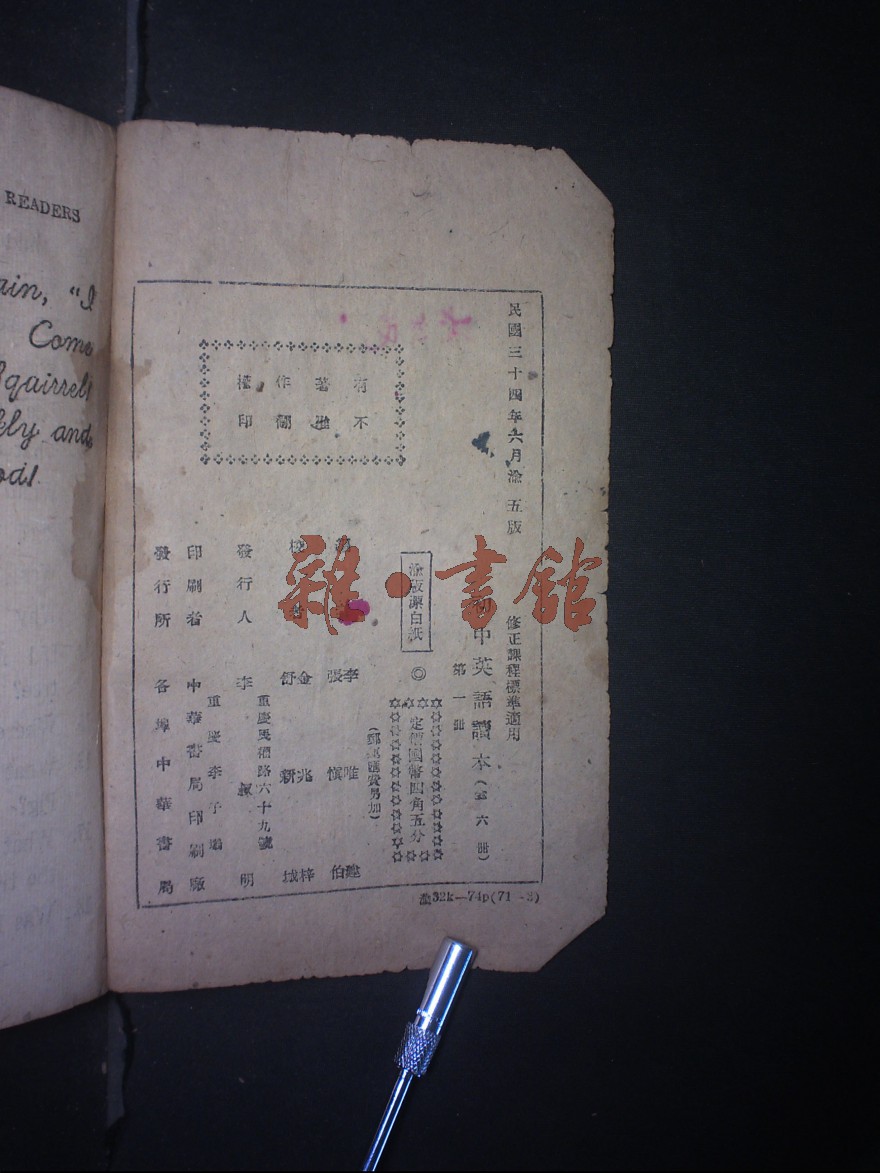 READERS
ain, "I
Come
Squirrel!
kly and
od!
民國三十四年六月渝五版
修正課程標準適用
初中英語讀本（全六冊）
第一冊
渝版漂白紙
◎
定價國幣四角五分
（郵運匯費另加）
有著作權
不准翻印
李唯
張慎伯
金兆梓
舒新城
發行人
李叔明
重慶民權路六十九號
印刷者
中華書局印刷廠
重慶李子壩
發行所
各埠中華書局
32k—74p(71
雜·書館